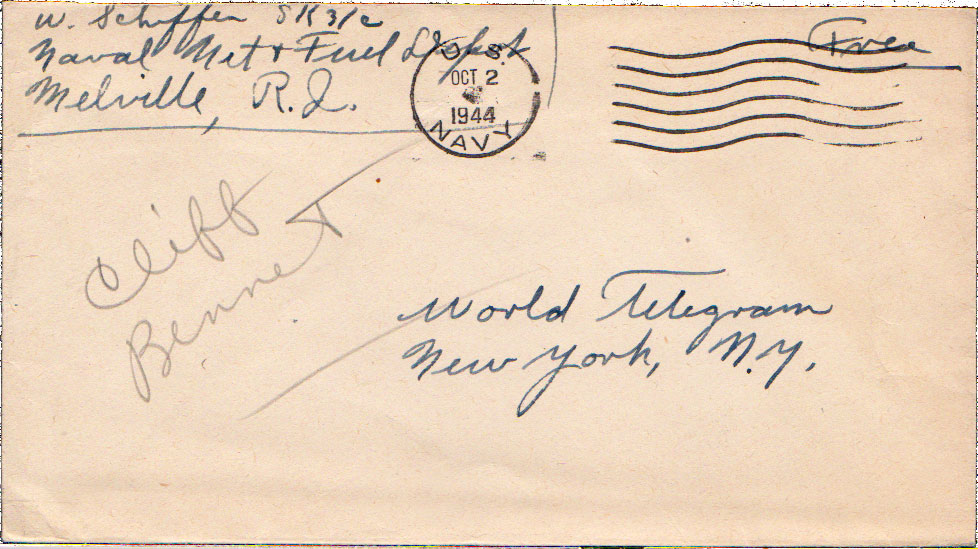 W. Schiffen SK3/c
Naval Net & Fuel Depot
Melville, R.I.
U.S.
OCT 2
1944
NAVY
Free
Cliff
Bennet
World Telegram
New York, N.Y.